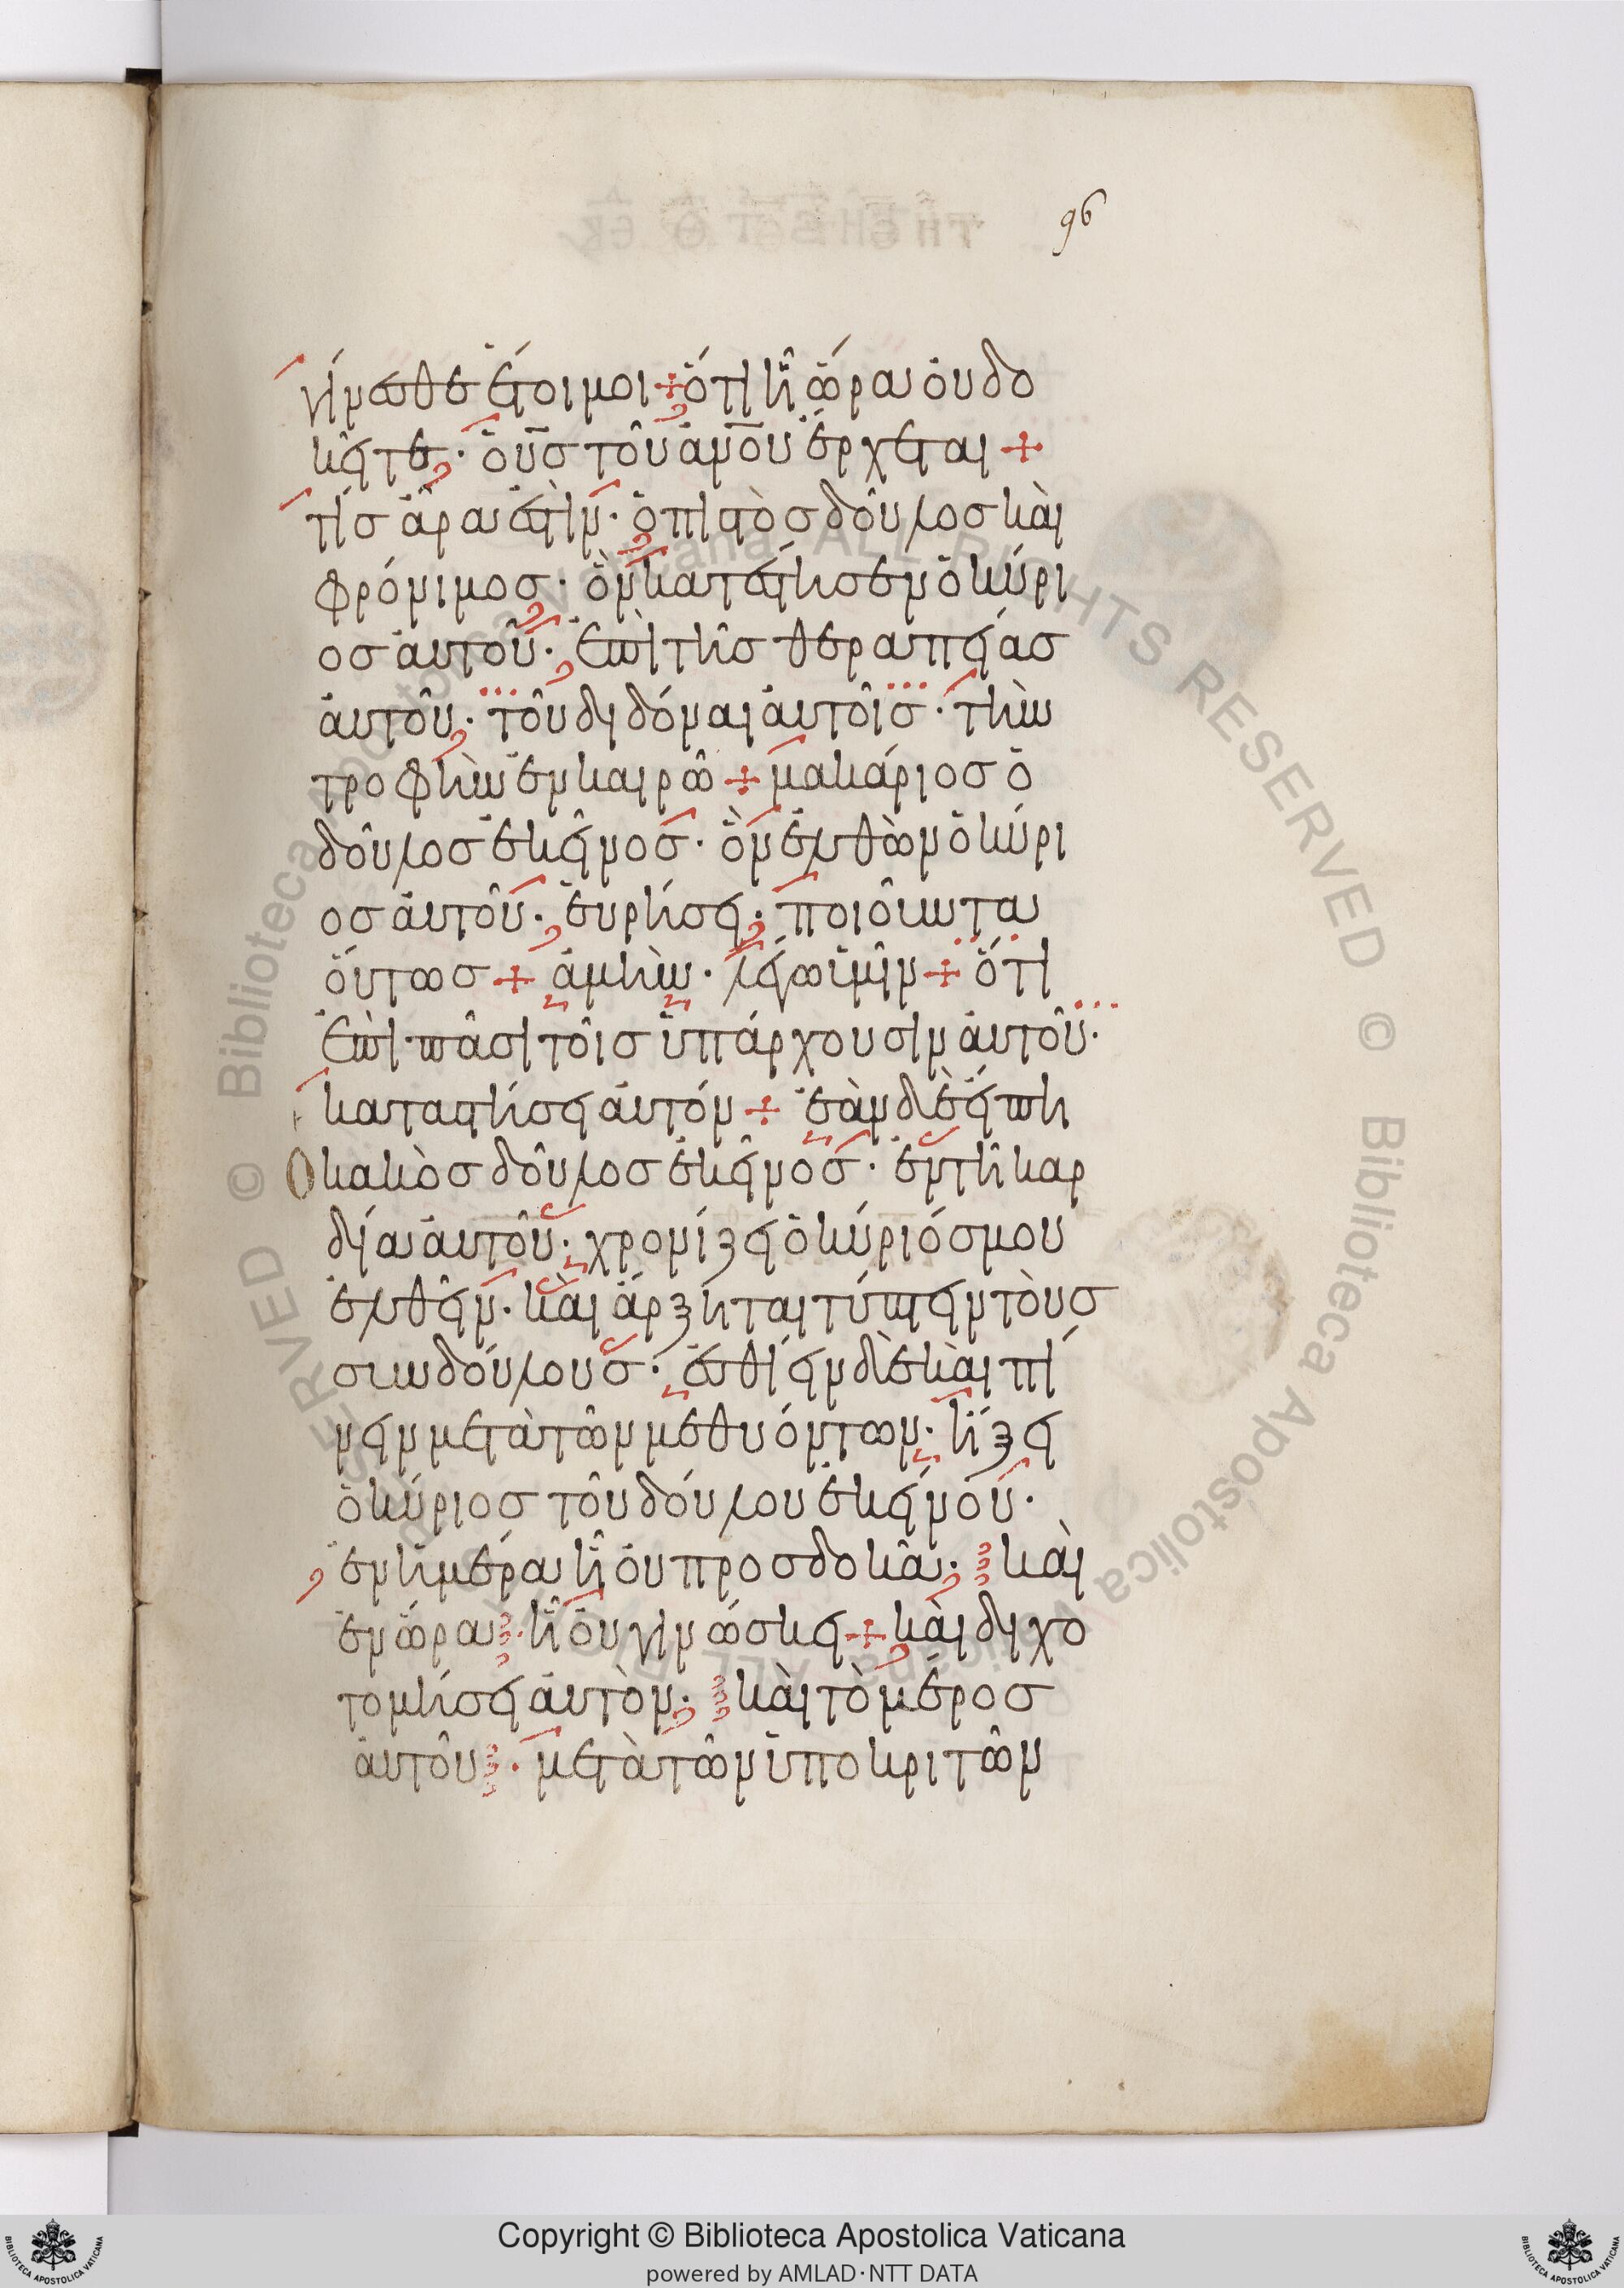 96
γίνεσθε ἕτοιμοι + ὅτι ἧ ὥρα οὐ δο
κεῖτε · ὁ υ̅ς̅ τοῦ α̅ν̅ο̅υ̅ ἔρχεται +
τίς ἄρα ἐστὶν · ὁ πιστὸς δοῦλος καὶ
φρόνιμος · ὃν κατέστησεν ὁ κύρι
ος αὐτοῦ · ἐπὶ τῆς θεραπείας
αὐτοῦ · τοῦ διδόναι αὐτοῖς · τὴν
τροφὴν ἐν καιρῶ + μακάριος ὁ
δοῦλος ἐκεῖνος · ὃν ἐλθὼν ὁ κύρι
ος αὐτοῦ · εὑρήσει · ποιοῦντα
οὕτως + ἀμὴν · λέγω ὑμῖν + ὅτι
ἐπὶ πᾶσι τοῖς ὑπάρχουσιν αὐτοῦ ·
καταστήσει αὐτόν + ἐὰν δὲ εἴπη
ὁ κακὸς δοῦλος ἐκεῖνος · ἐν τῆ καρ
δία αὐτοῦ · χρονίζει ὁ κύριός μου
ἐλθεῖν · καὶ ἄρξηται τύπτειν τοὺς
συνδούλους · ἐσθίειν δὲ καὶ πί
νειν μετὰ τῶν μεθυόντων · ἥξει
ὁ κύριος τοῦ δούλου ἐκείνου ·
ἐν ἡμέρα ἧ οὐ προσδοκᾶ · καὶ
ἐν ὥρα · ἧ οὐ γινώσκει + καὶ διχο
τομήσει αὐτὸν · καὶ τὸ μέρος
αὐτοῦ · μετὰ τῶν ὑποκριτῶν
Copyright © Biblioteca Apostolica Vaticana
powered by AMLAD·NTT DATA